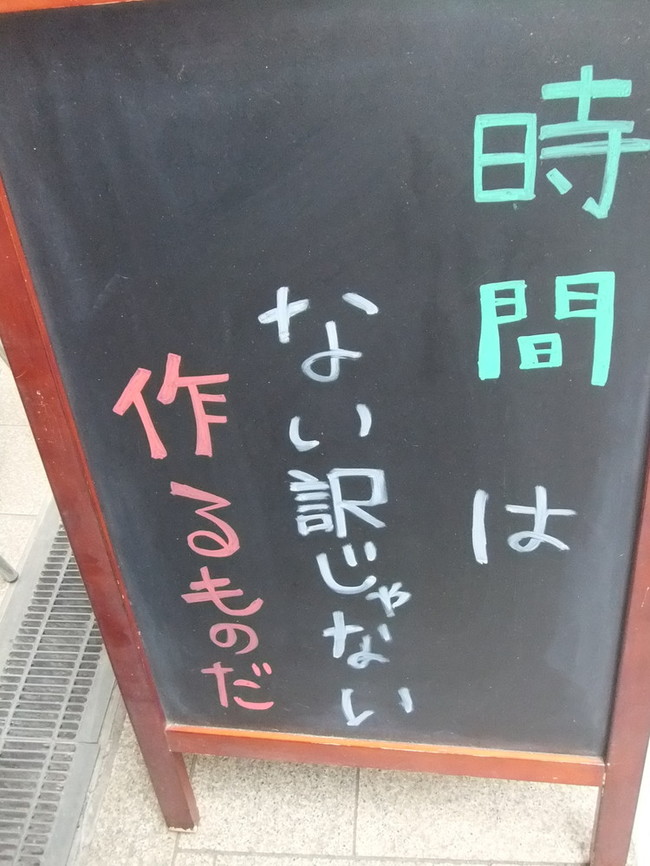 時間は
ない訳じゃない
作るものだ